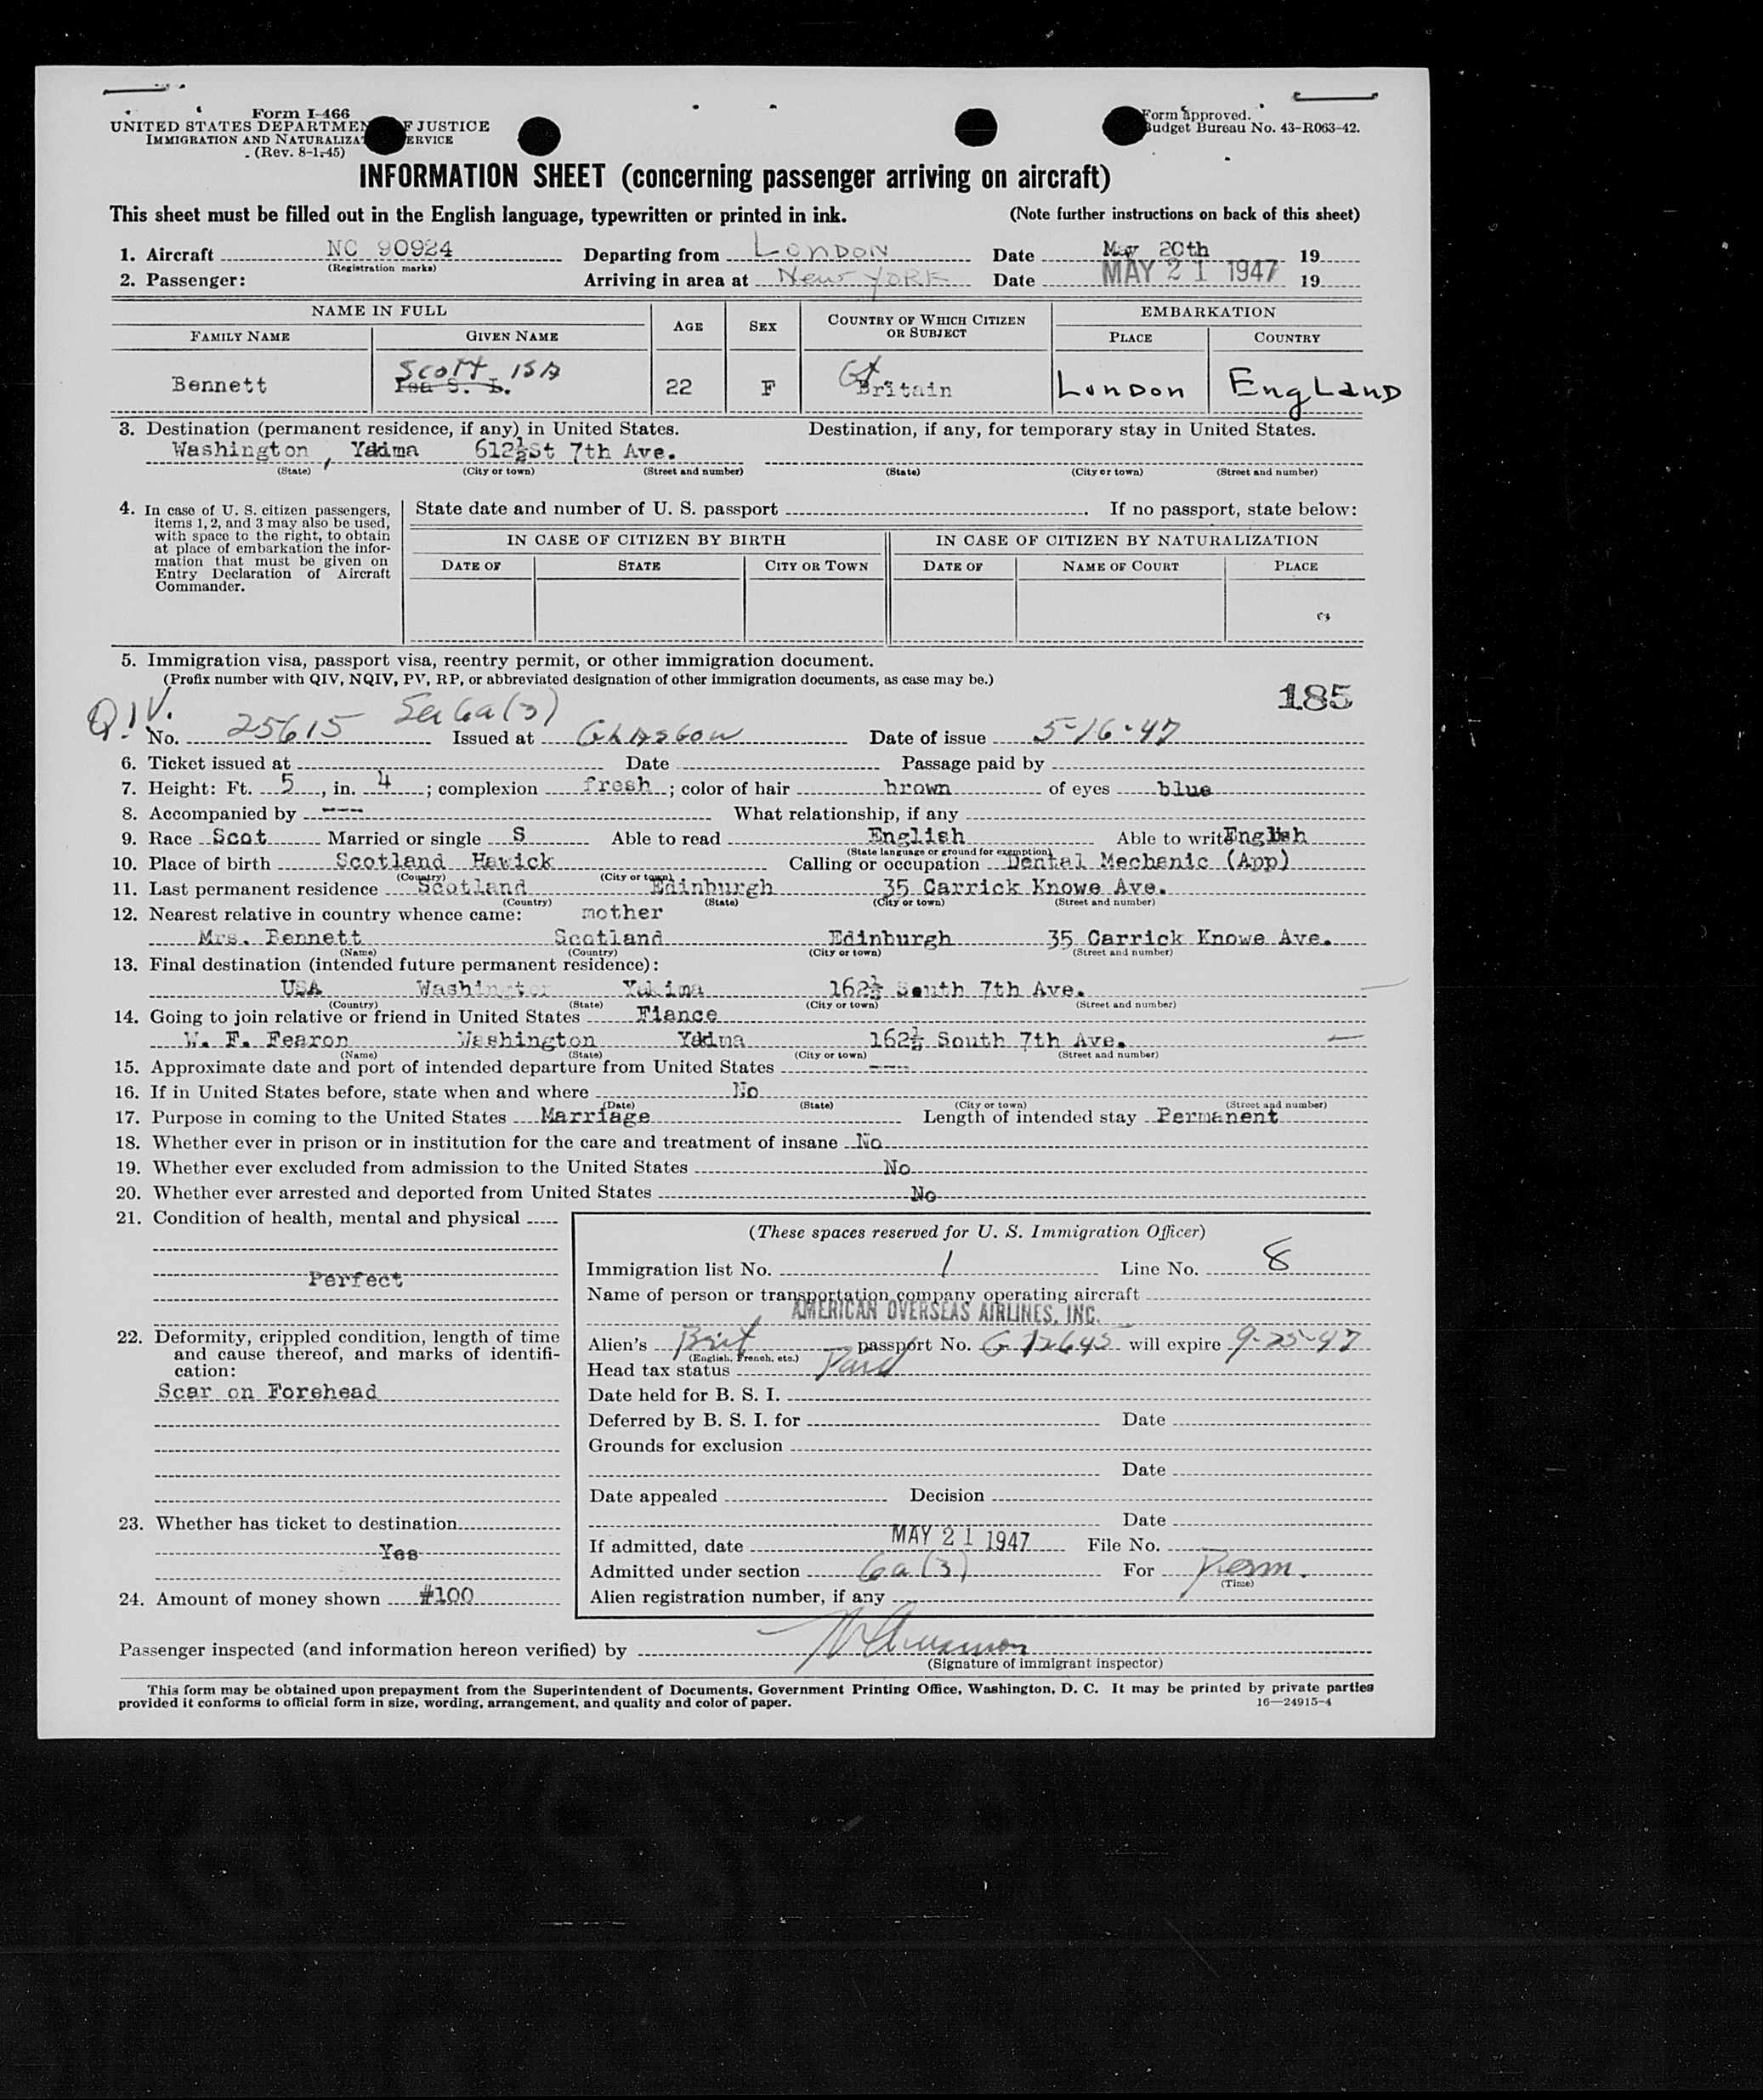 Form I-466
UNITED STATES DEPARTMEN F JUSTICE
IMMIGRATION AND NATURALIZA ERVICE
(Rev. 8-1-45)
Form approved.
Budget Bureau No. 43-R063-42.
INFORMATION SHEET (concerning passenger arriving on aircraft)
This sheet must be filled out in the English language, typewritten or printed in ink. (Note further instructions on back of this sheet)
1. Aircraft NC 90924 Departing from London Date May 20th 19
(Registration marks)
2. Passenger: Arriving in area at New York Date MAY 21 1947 19
NAME IN FULL AGE SEX COUNTRY OF WHICH CITIZEN OR SUBJECT EMBARKATION
FAMILY NAME GIVEN NAME PLACE COUNTRY
Scott ISA Gt
Bennett Isa S. L. 22 F Britain London England
3. Destination (permanent residence, if any) in United States. Destination, if any, for temporary stay in United States.
Washington, Yakima 612½St 7th Ave.
(State) (City or town) (Street and number) (State) (City or town) (Street and number)
4. In case of U. S. citizen passengers, items 1, 2, and 3 may also be used, with space to the right, to obtain at place of embarkation the information that must be given on Entry Declaration of Aircraft Commander.
State date and number of U. S. passport . If no passport, state below:
IN CASE OF CITIZEN BY BIRTH IN CASE OF CITIZEN BY NATURALIZATION
DATE OF STATE CITY OR TOWN DATE OF NAME OF COURT PLACE
5. Immigration visa, passport visa, reentry permit, or other immigration document.
(Prefix number with QIV, NQIV, PV, RP, or abbreviated designation of other immigration documents, as case may be.)
185
QIV. Sec 6a(3)
No. 25615 Issued at Glasgow Date of issue 5-16-47
6. Ticket issued at Date Passage paid by
7. Height: Ft. 5, in. 4; complexion fresh; color of hair brown of eyes blue
8. Accompanied by ---- What relationship, if any
9. Race Scot Married or single S Able to read English Able to write English
(State language or ground for exemption)
10. Place of birth Scotland Hawick Calling or occupation Dental Mechanic (App)
(Country) (City or town)
11. Last permanent residence Scotland Edinburgh 35 Carrick Knowe Ave.
(Country) (State) (City or town) (Street and number)
12. Nearest relative in country whence came: mother
Mrs. Bennett Scotland Edinburgh 35 Carrick Knowe Ave.
(Name) (Country) (City or town) (Street and number)
13. Final destination (intended future permanent residence):
USA Washington Yakima 162½ South 7th Ave.
(Country) (State) (City or town) (Street and number)
14. Going to join relative or friend in United States Fiance
W. F. Fearon Washington Yakima 162½ South 7th Ave.
(Name) (State) (City or town) (Street and number)
15. Approximate date and port of intended departure from United States ----
16. If in United States before, state when and where No
(Date) (State) (City or town) (Street and number)
17. Purpose in coming to the United States Marriage Length of intended stay Permanent
18. Whether ever in prison or in institution for the care and treatment of insane No
19. Whether ever excluded from admission to the United States No
20. Whether ever arrested and deported from United States No
21. Condition of health, mental and physical
Perfect
22. Deformity, crippled condition, length of time and cause thereof, and marks of identification:
Scar on Forehead
23. Whether has ticket to destination
Yes
24. Amount of money shown #100
(These spaces reserved for U. S. Immigration Officer)
Immigration list No. 1 Line No. 8
Name of person or transportation company operating aircraft
AMERICAN OVERSEAS AIRLINES, INC.
Alien's Brit passport No. G 12645 will expire 9-25-47
(English, French, etc.)
Head tax status Paid
Date held for B. S. I.
Deferred by B. S. I. for Date
Grounds for exclusion
Date
Date appealed Decision
Date
If admitted, date MAY 21 1947 File No.
Admitted under section 6a(3) For Perm.
(Time)
Alien registration number, if any
Passenger inspected (and information hereon verified) by
(Signature of immigrant inspector)
This form may be obtained upon prepayment from the Superintendent of Documents, Government Printing Office, Washington, D. C. It may be printed by private parties
provided it conforms to official form in size, wording, arrangement, and quality and color of paper. 16—24915-4